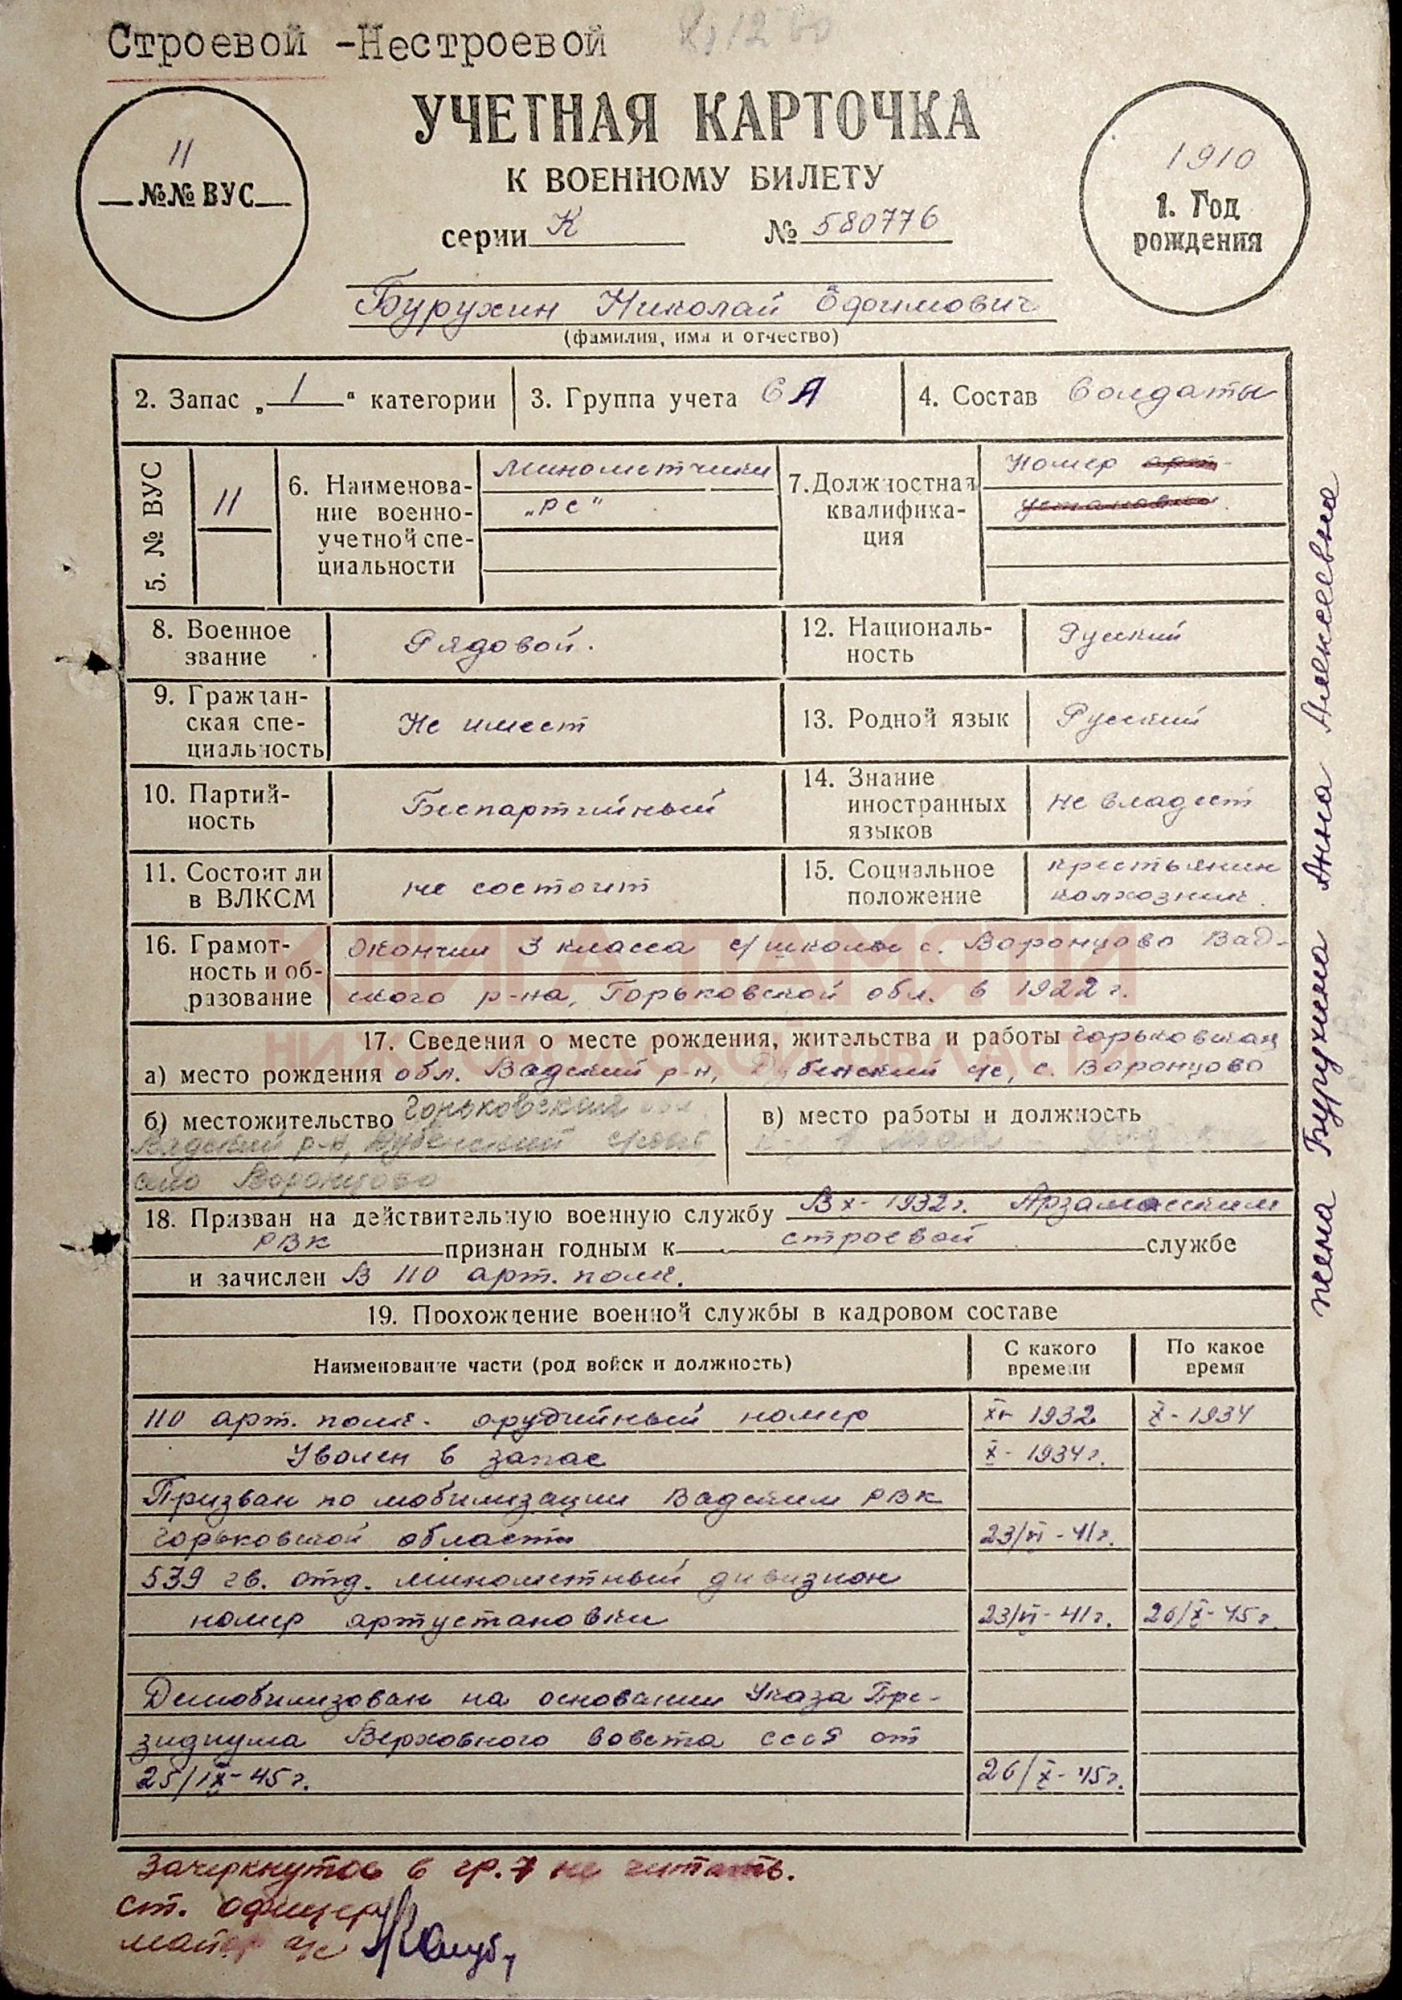 Строевой -Нестроевой
УЧЕТНАЯ КАРТОЧКА
К ВОЕННОМУ БИЛЕТУ
серии К № 580776
11
№№ ВУС
1910
1. Год
рождения
Бурухин Николай Ефимович
(фамилия, имя и отчество)
2. Запас „ 1 “ категории
3. Группа учета 6 Я
4. Состав Солдаты
5. № ВУС
11
6. Наименова-
ние военно-
учетной спе-
циальности
Минометчики
„РС"
7. Должностная
квалифика-
ция
Номер арт-
установки.
8. Военное
звание
Рядовой.
12. Националь-
ность
Русский
9. Граждан-
ская спе-
циальность
Не имеет
13. Родной язык
Русский
10. Партий-
ность
Беспартийный
14. Знание
иностранных
языков
не владеет
11. Состоит ли
в ВЛКСМ
не состоит
15. Социальное
положение
крестьянин
колхозник.
16. Грамот-
ность и об-
разование
Окончил 3 класса с/школы с. Воронцово Вад-
ского р-на, Горьковской обл. в 1922 г.
КНИГА ПАМЯТИ
НИЖЕГОРОДСКОЙ ОБЛАСТИ
17. Сведения о месте рождения, жительства и работы Горьковская
а) место рождения обл. Вадский р-н, Дубенский с/с, с. Воронцово
б) местожительство Горьковская обл.
Вадский р-н, Дубенский
село Воронцово
в) место работы и должность
18. Призван на действительную военную службу В X-1932г. Арзамасским
РВК признан годным к строевой службе
и зачислен В 110 арт. полк.
19. Прохождение военной службы в кадровом составе
Наименование части (род войск и должность)
С какого
времени
По какое
время
110 арт. полк- орудийный номер XI- 1932 X- 1934
Уволен в запас X- 1934г.
Призван по мобилизации Вадским РВК
Горьковской области 23/VI-41г.
539 гв. отд. минометный дивизион
номер артустановки 23/VI-41г. 26/X-45г.
Демобилизован на основании Указа Пре-
зидиума Верховного Совета СССР от
25/IX-45г. 26/X-45г.
Зачеркнутое в гр.7 не читать.
ст. офицер
жена Бурухина Анна Алексеевна